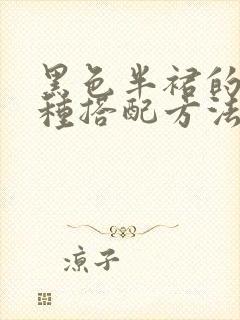 黑色半裙的
種搭配方法
凉子